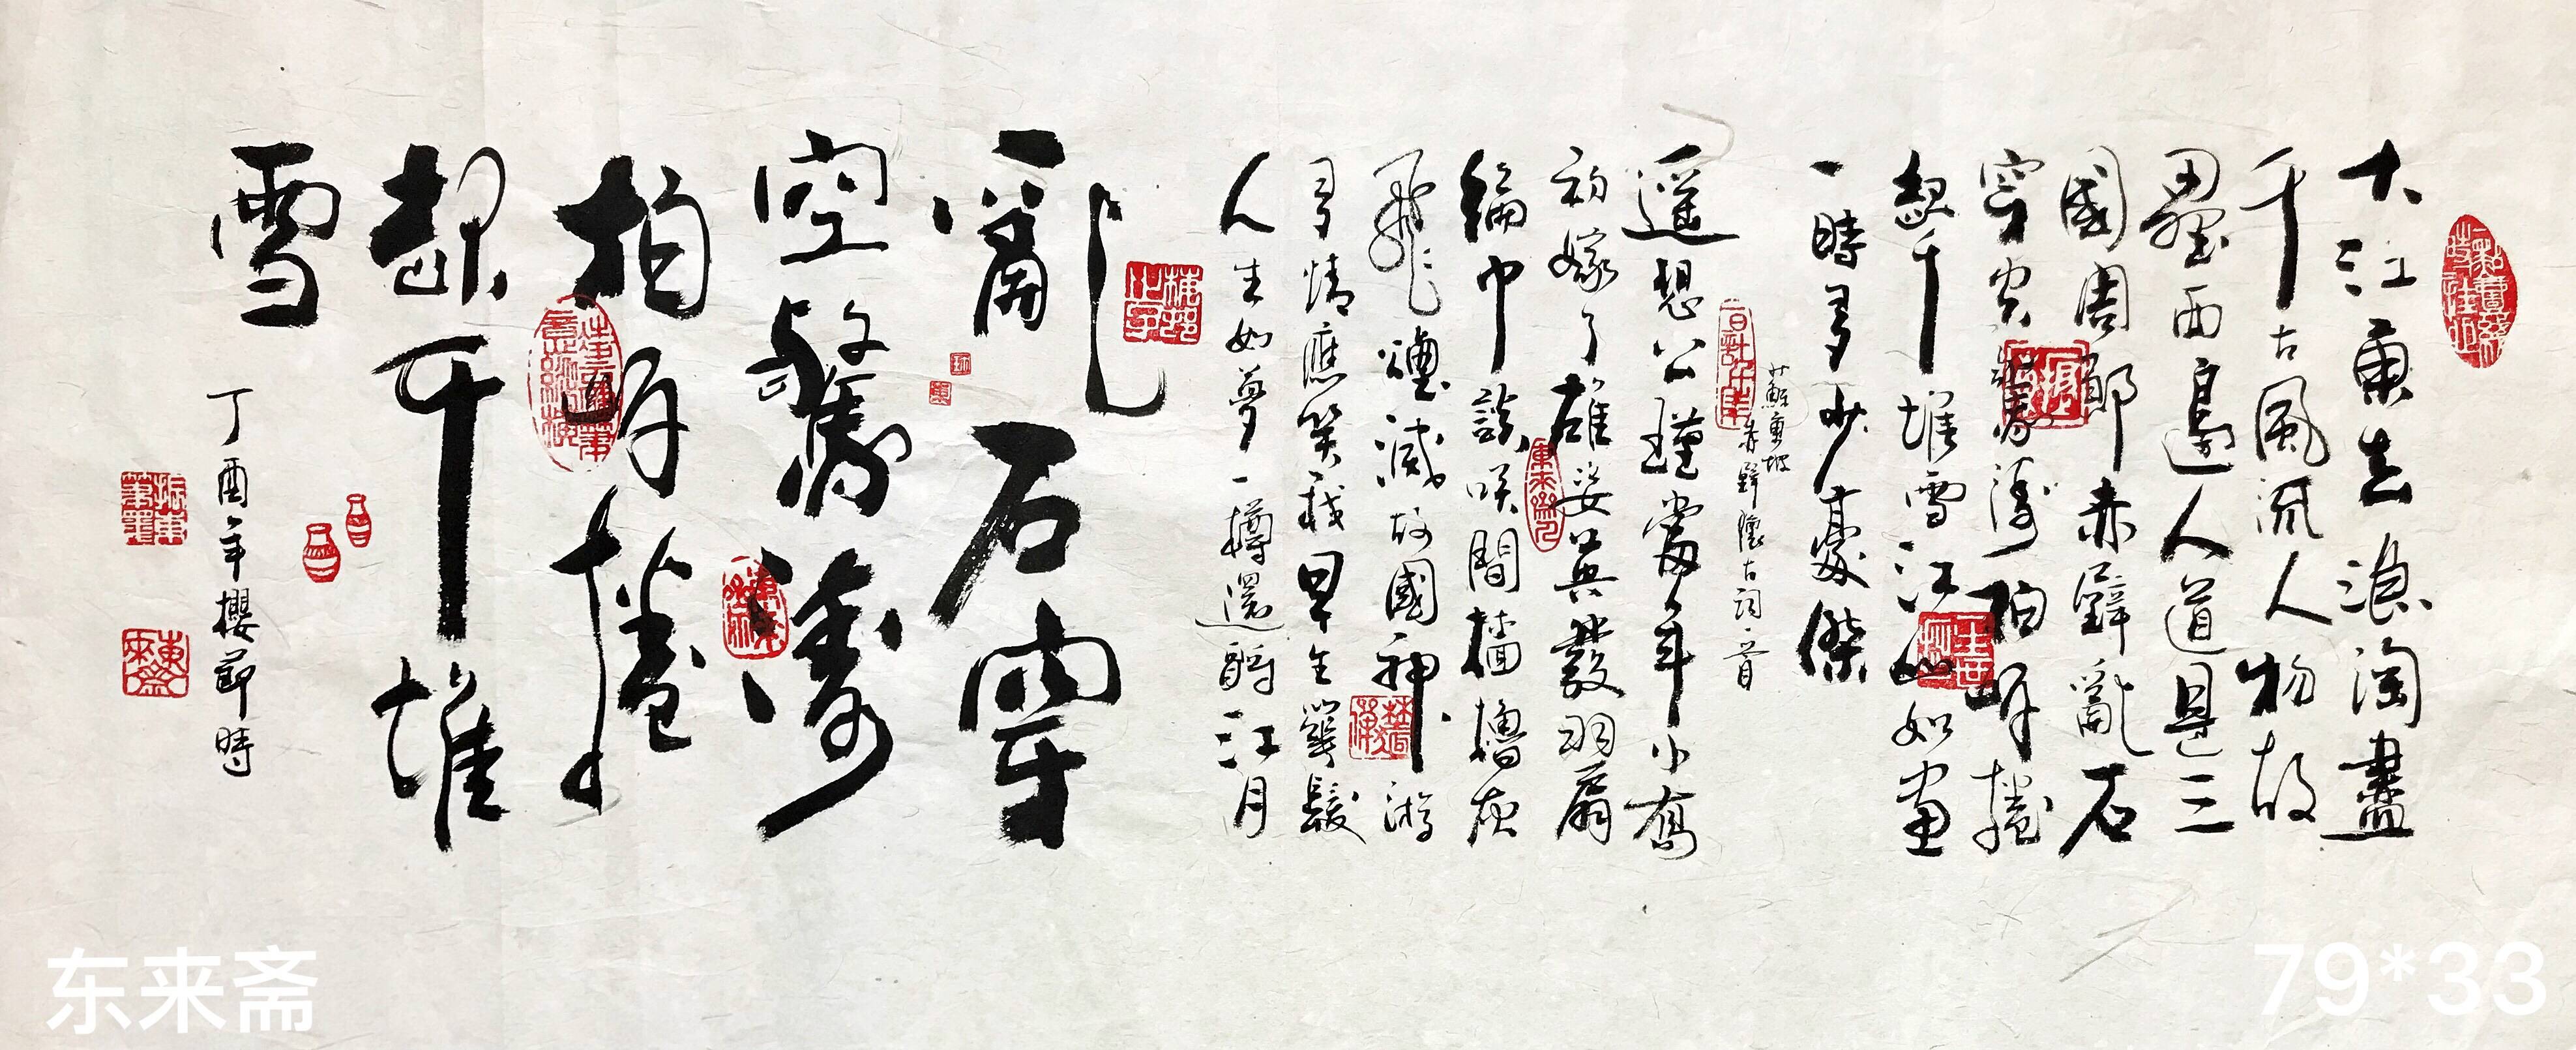 大江東去浪淘盡
千古風流人物故
壘西邊人道是三
國周郎赤壁亂石
穿空驚濤拍岸捲
起千堆雪江山如畫
一時多少豪傑
蘇東坡
赤壁懷古詞一首
遙想公瑾當年小喬
初嫁了雄姿英發羽扇
綸巾談咲間檣櫓灰
飛煙滅故國神游
多情應笑我早生華髮
人生如夢一樽還酹江月
亂石穿
空驚濤
拍岸捲
起千堆
雪
丁酉年櫻節時
振東筆墨
東來齋
东来斋
79*33